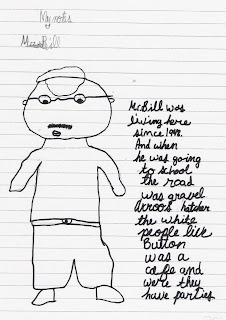 My notes
Mr Bill
Mr Bill was
living here
since 1948.
And when
he was going
to school
the road
was gravel
the white
people live
Button
was a
cafe and
were they
have parties